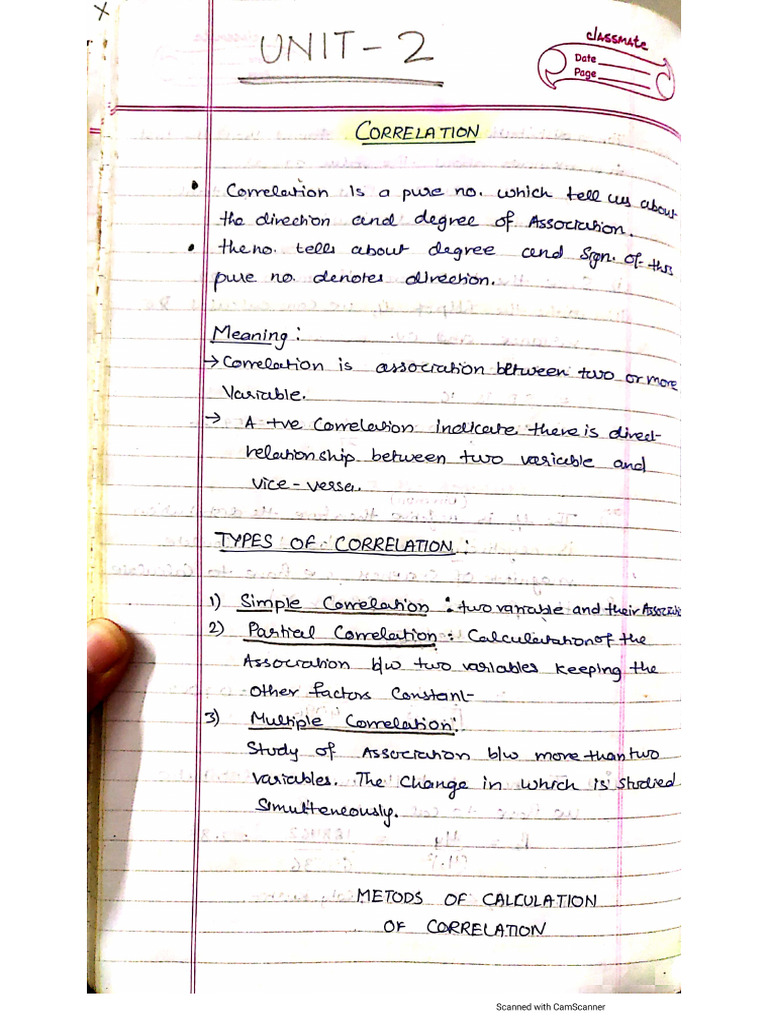 X
UNIT-2
classmate
Date
Page
CORRELATION
• Correlation is a pure no. which tell us about
the direction and degree of Association.
• the no. tells about degree and Sign. of this
pure no. denotes direction.
Meaning:
→ Correlation is association between two or more
Variable.
→ A +ve Correlation indicate there is direct
relationship between two variable and
vice-versa.
TYPES OF CORRELATION:
1) Simple Correlation: two variable and their
2) Partial Correlation: Calculatation of the
Association b/w two variables keeping the
other factors Constant-
3) Multiple Correlation:
Study of Association b/w more than two
variables. The Change in which is studied
Simulteneously.
METODS OF CALCULATION
OF CORRELATION
Scanned with CamScanner